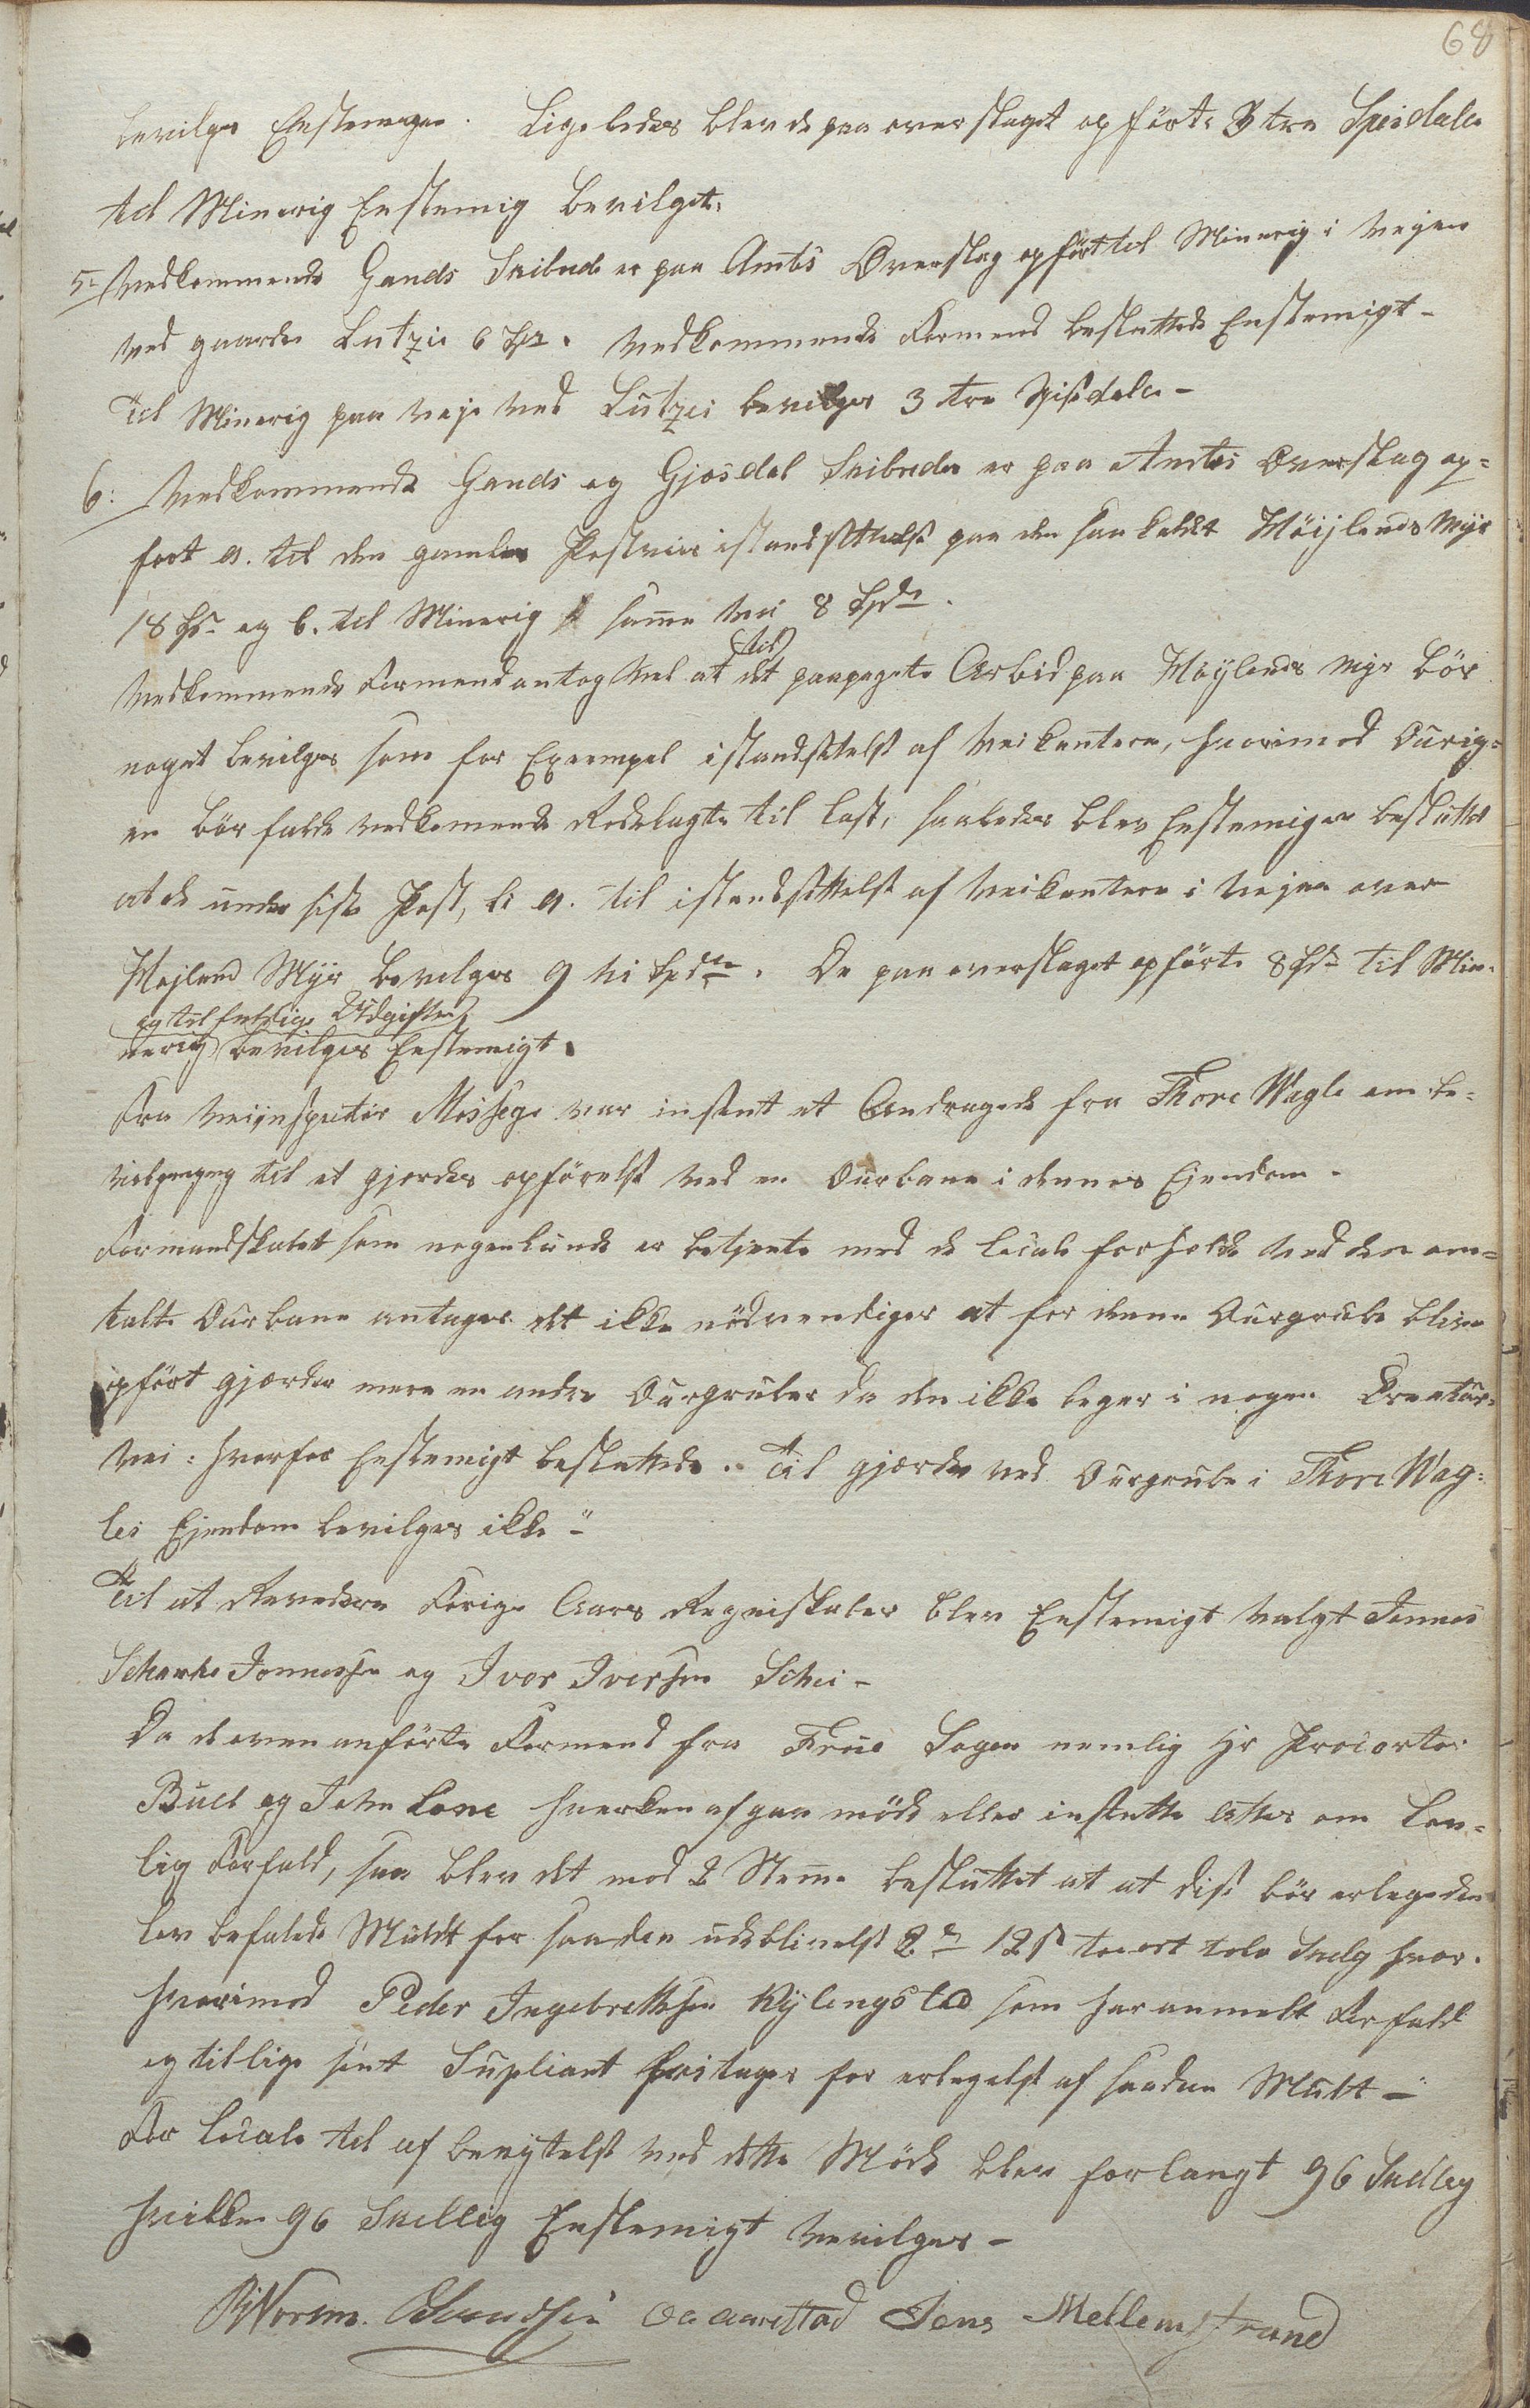 68
bevilges Enstemigen. Ligeledes blev de paa overslaget opførte 3 tre Speisdaler
til Minerig Enstemig bevilget.
5- Vedkommende Gands Skibrede er paa Amts Overslag opført til Minerig i Vejen
ved gaarden Lutzie 6 Spd. Vedkommende Formend besluttede Enstemigt -
Til Minerig paa Veje ved Lutzei bevilges 3 tre Spisdaler -
6: Vedkommende Gands og Gjosdal Skibreder er paa Amtes Overslag op=
fort a. til den gamle Postvies istandsættelse paa den saa kaldet Höijlands Myr
18 Spd og b. til Minerig samme Vei 8 Spdr.
Vedkommende Formend antog vel at (til) det paapegete Arbeid paa Høylands Myr bør
noget bevilges som for Exsempel istandsettelse af Veikantere, hvorimod Øurig=
en bør falde vedkomende Rodelagte til last, saaledes blev Enstemigen besluttet
at de under siste Post, L: a. til istandsettelse af Veikantere i Vejen over
Højland Myr bevilges 9 ni Spdr. De paa overslaget opførte 8 Spd til Min-
og tilfeldige Udgifter
nerig bevilges Enstemigt.
Fra Veiinspektør Missege var insent et Andragende fra Thore Wagle om be=
vielgning til et gjerdes opførelse ved en Øurbane i dennes Ejendom.
Formandskabet som nogenlunde er bekjente med de locale forholde ved den om=
talte Øurbane antager det ikke nødvendiger at for denne Øurgrube bliver
opført gjærder mere en andre Øurgruber da den ikke leger i nogen Creatur=
vei: hvorfor Enstemigt besluttede. Til gjærde ved Øurgrube i Thore Wag=
les Ejendom bevilges ikke"-
Til at Revedere Forige Aars Regnskaber blev Enstemigt Valgt Jonnes
Scharhe Jonnessen og Iver Iversen Schei -
Da de oven anførte Formend fra Frue Sogen nemlig Hr Procorator
Buch og John Lone hverken afgav møde eller instentte Attes om lov=
lig Forfald, saa blev det mod 2 Stemme besluttet at at disse bør erlegeden
lov befalede Muldt for saaden udeblivelse 2 12 to ort tolv Skelg hver.
hvorimod Peder Ingebretthsen Kylengstad som har anmelt Forfald
og tillige sent Supliant fritages for erlegelse af saaden Mulkt -"
For locale til af benytelse ved dette Møde blev forlangt 96 Skelleg
hvilken 96 Skellig Enstemigt bevilges -
BWorm. Asmundsen Oe aarestad Jens Mellemstrand